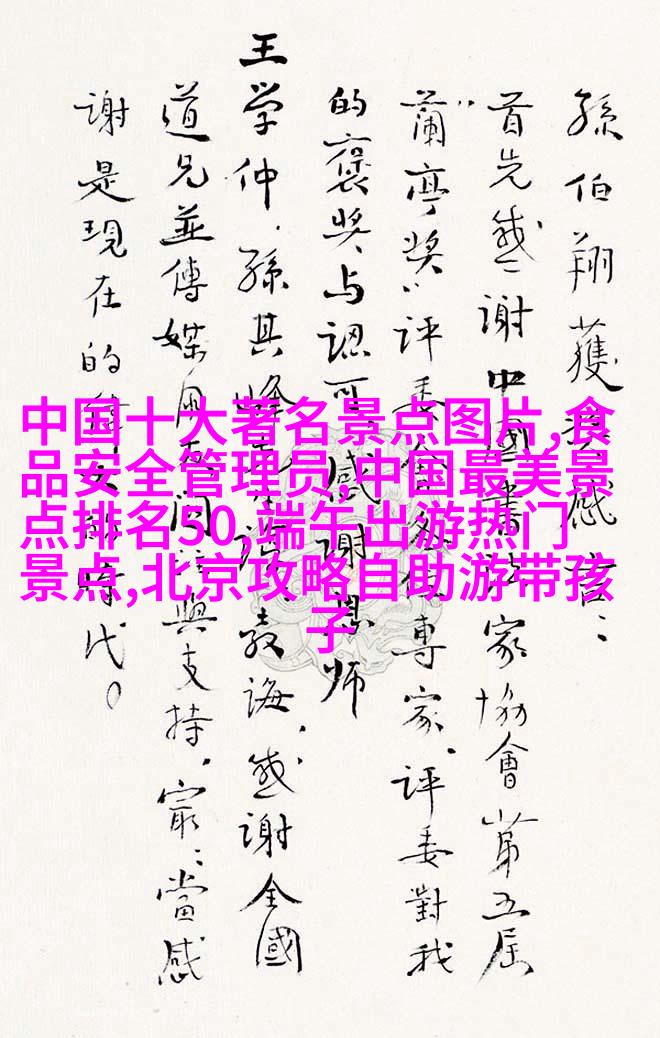 孫伯翔獲獎感言:
首先感謝中國書法家協會第五届
"蘭亭獎"評委會各位專家、評委對我
的褒奬与認可,感謝恩師
王学仲、孫其峰先生教誨,感謝全國
道兄並傳媒関注與支持,最當感
謝是現在的時代。
中国十大著名景点图片,食
品安全管理员,中国最美景
点排名50,端午出游热门
景点,北京攻略自助游带孩
子